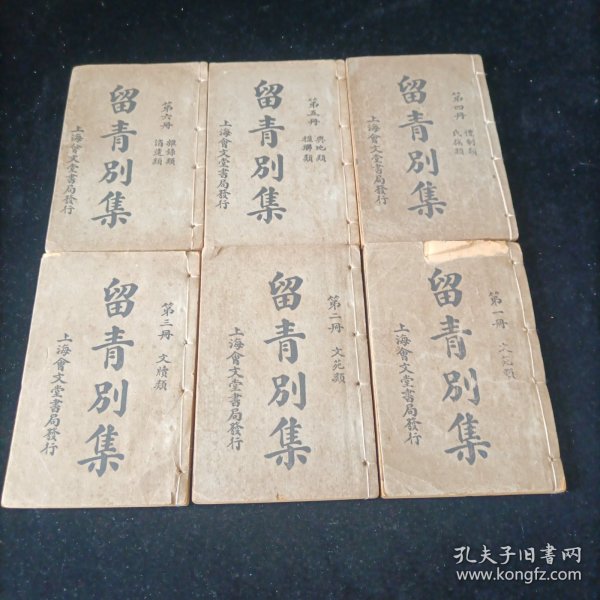 第六冊 雜錄類
消遣類
留青別集
上海會文堂書局發行
第五冊 輿地類
楹聯類
留青別集
上海會文堂書局發行
第四冊 禮制類
氏族類
留青別集
上海會文堂書局發行
第三冊 文牘類
留青別集
上海會文堂書局發行
第二冊 文苑類
留青別集
上海會文堂書局發行
第一冊
留青別集
上海會文堂書局發行
孔夫子旧书网
www.kongfz.com